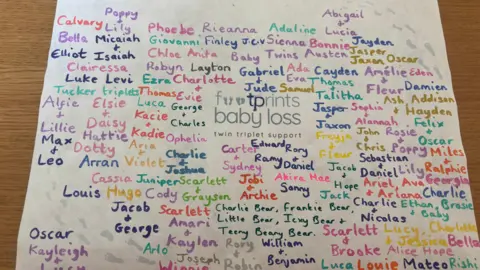 Poppy Abigail
Calvary Lily Phoebe Rieanna Adaline Lucia
Bella Micaiah Giovanni Finley J.C.V Sienna Bonnie Jayden
Elliot Isaiah Chloe Anita Baby Twins Austen Jasper
Jaxon Oscar
Clairessa Robyn Layton Gabriel Ada Cayden Amélie Eden
Luke Levi Ezra Charlotte Jude Eva Samuel Thomas Fleur Damien
Tucker triplets Thomas Evie Talitha Ash, Addison
Alfie Elsie Luca George footprints Jasper Sophia Hayden
Lillie Daisy Kacie Charles baby loss Jaxon Alannah Felix
Max Hattie Aria Kadie Ophelia twin triplet support John Rosie Oscar
Dotty Carter Edward Rory Freyja Chris Poppy Miles
Leo Arran Violet Charlie Joshua Sydney Romy Daniel Fleur Sebastian
Daniel Lily Ralphie
Cassia Juniper Scarlett Jobi Akira Mae Jacob Ariel, Ava Georgia
Louis Hugo Cody Grayson Archie Sonny Jack Hope Ariana Charlie
Jacob Scarlett Charlie Bear, Frankie Bear Charlie Ethan, Brose
George Amari Little Bear, Icey Bear Nicolas Baby
Oscar Teeny Beany Bear. Scarlett Lucy, Charlotte
Kayleigh Arlo Kaylen Rory William Brooke Alice Hope Jessica Bella
Joseph Robin Benjamin Luca Louie Mateo Rishi
Winnie